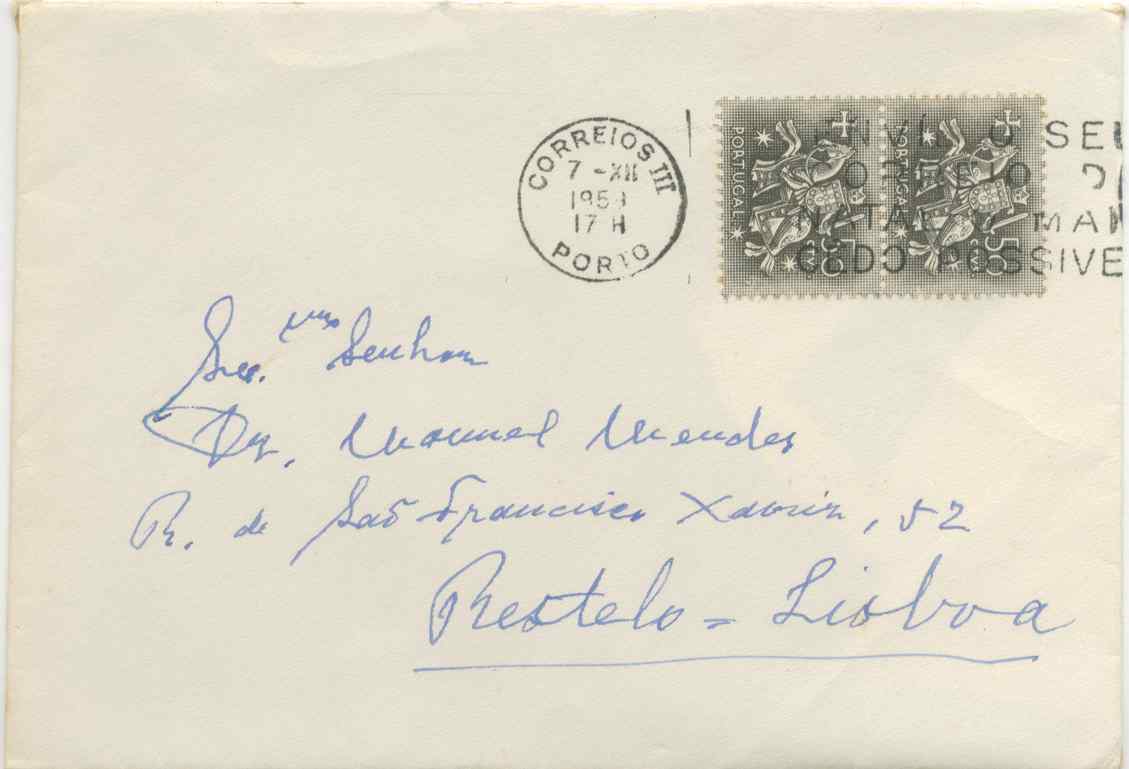 CORREIOS III
7 -XII
17 H
PORTO
ENVIE O SEU
CORREIO D
NATAL O MAI
CEDO POSSIVE
PORTUGAL
50
PORTUGAL
50
Senhor
Dr. Manuel Mendes
R. de São Francisco Xavier, 52
Restelo = Lisboa